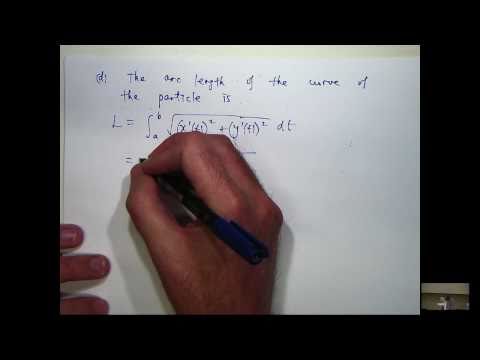 (d) The arc length of the curve of
the particle is
L = ∫_a^b √((x'(t))² + (y'(t))²) dt
=